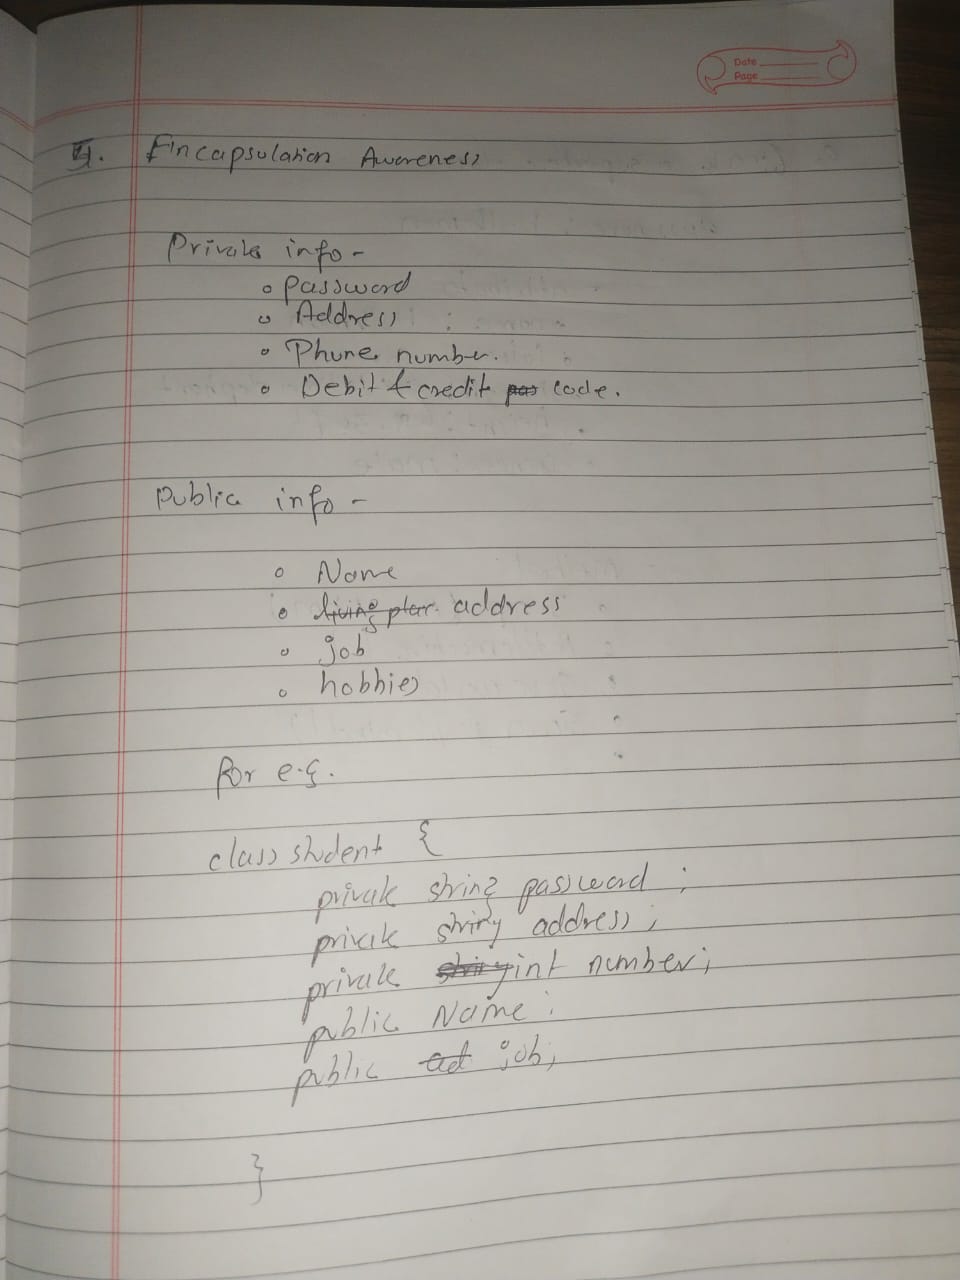 Date
Page
4. Encapsulation Awareness
Private info -
Password
Address
Phone number.
Debit & credit code.
Public info -
Name
living address
job
hobbies
for e.g.
class student {
private string password ;
private string address ;
private int number ;
public Name ;
public job ;
}